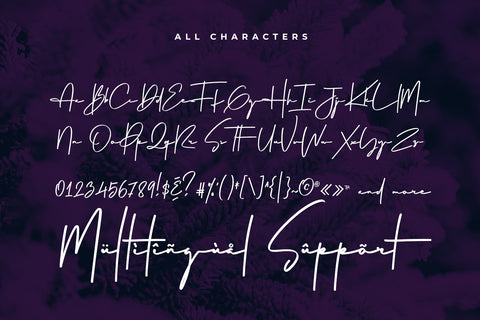 ALL CHARACTERS
Aa Bb Cc Dd Ee Ff Gg Hh Ii Jj Kk Ll Mm
Nn Oo Pp Qq Rr Ss Tt Uu Vv Ww Xx Yy Zz
0123456789!$£? #%'()+[\]^{|}~©®«» and more
Mültìlîñgùål Sûppõrt